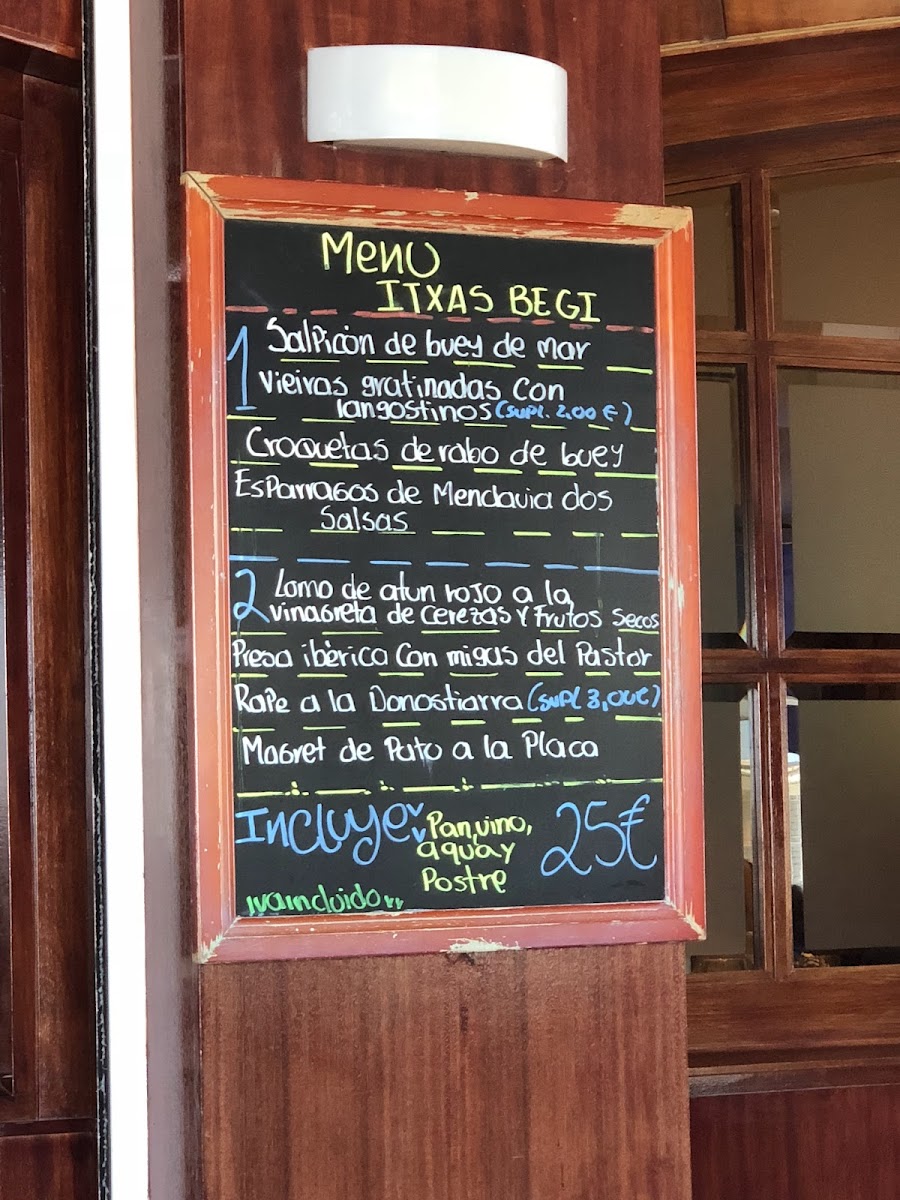 Menu
ITXAS BEGI
1 Salpicón de buey de mar
Vieiras gratinadas con
langostinos (supl. 2,00 €)
Croquetas de rabo de buey
Esparragos de Mendavia dos
Salsas
2 Lomo de atun rojo a la
vinagreta de cerezas y frutos secos
Presa ibèrica con migas del Pastor
Rape a la Donostiarra (supl 3,00€)
Magret de Pato a la Placa
Incluye: Pan, vino,
agua y
Postre
25€
iva incluido